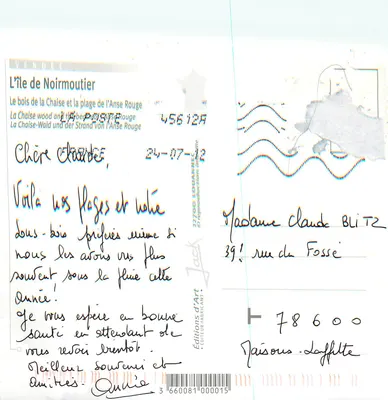 L'île de Noirmoutier
Le bois de la Chaise et la plage de l'Anse Rouge
La Chaise wood and the beach of Anse Rouge
La Chaise-Wald und der Strand von l'Anse Rouge
LA POSTE 45612A
FRANCE 24-07-12
Chère Claude,
Voilà nos plages et notre
sous-bois préférés même si
nous les avons vus plus
souvent sous la pluie cette
année!
Je vous espère en bonne
santé en attendant de
vous revoir bientôt.
Meilleur souvenir et
amitiés. Annie
Jack
Editions d'Art
Madame Claude BLITZ
39, rue du Fossé
78600
Maisons-Laffitte
3 660081 000015